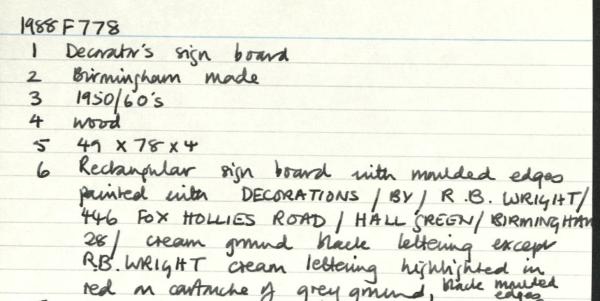 1988 F 778
1 Decorator's sign board
2 Birmingham made
3 1950/60's
4 wood
5 49 x 78 x 4
6 Rectangular sign board with moulded edges
painted with DECORATIONS / BY / R.B. WRIGHT /
446 FOX HOLLIES ROAD / HALL GREEN / BIRMINGHAM
28 / cream ground black lettering except
R.B. WRIGHT cream lettering highlighted in
red on cartouche of grey ground, black moulded
edges